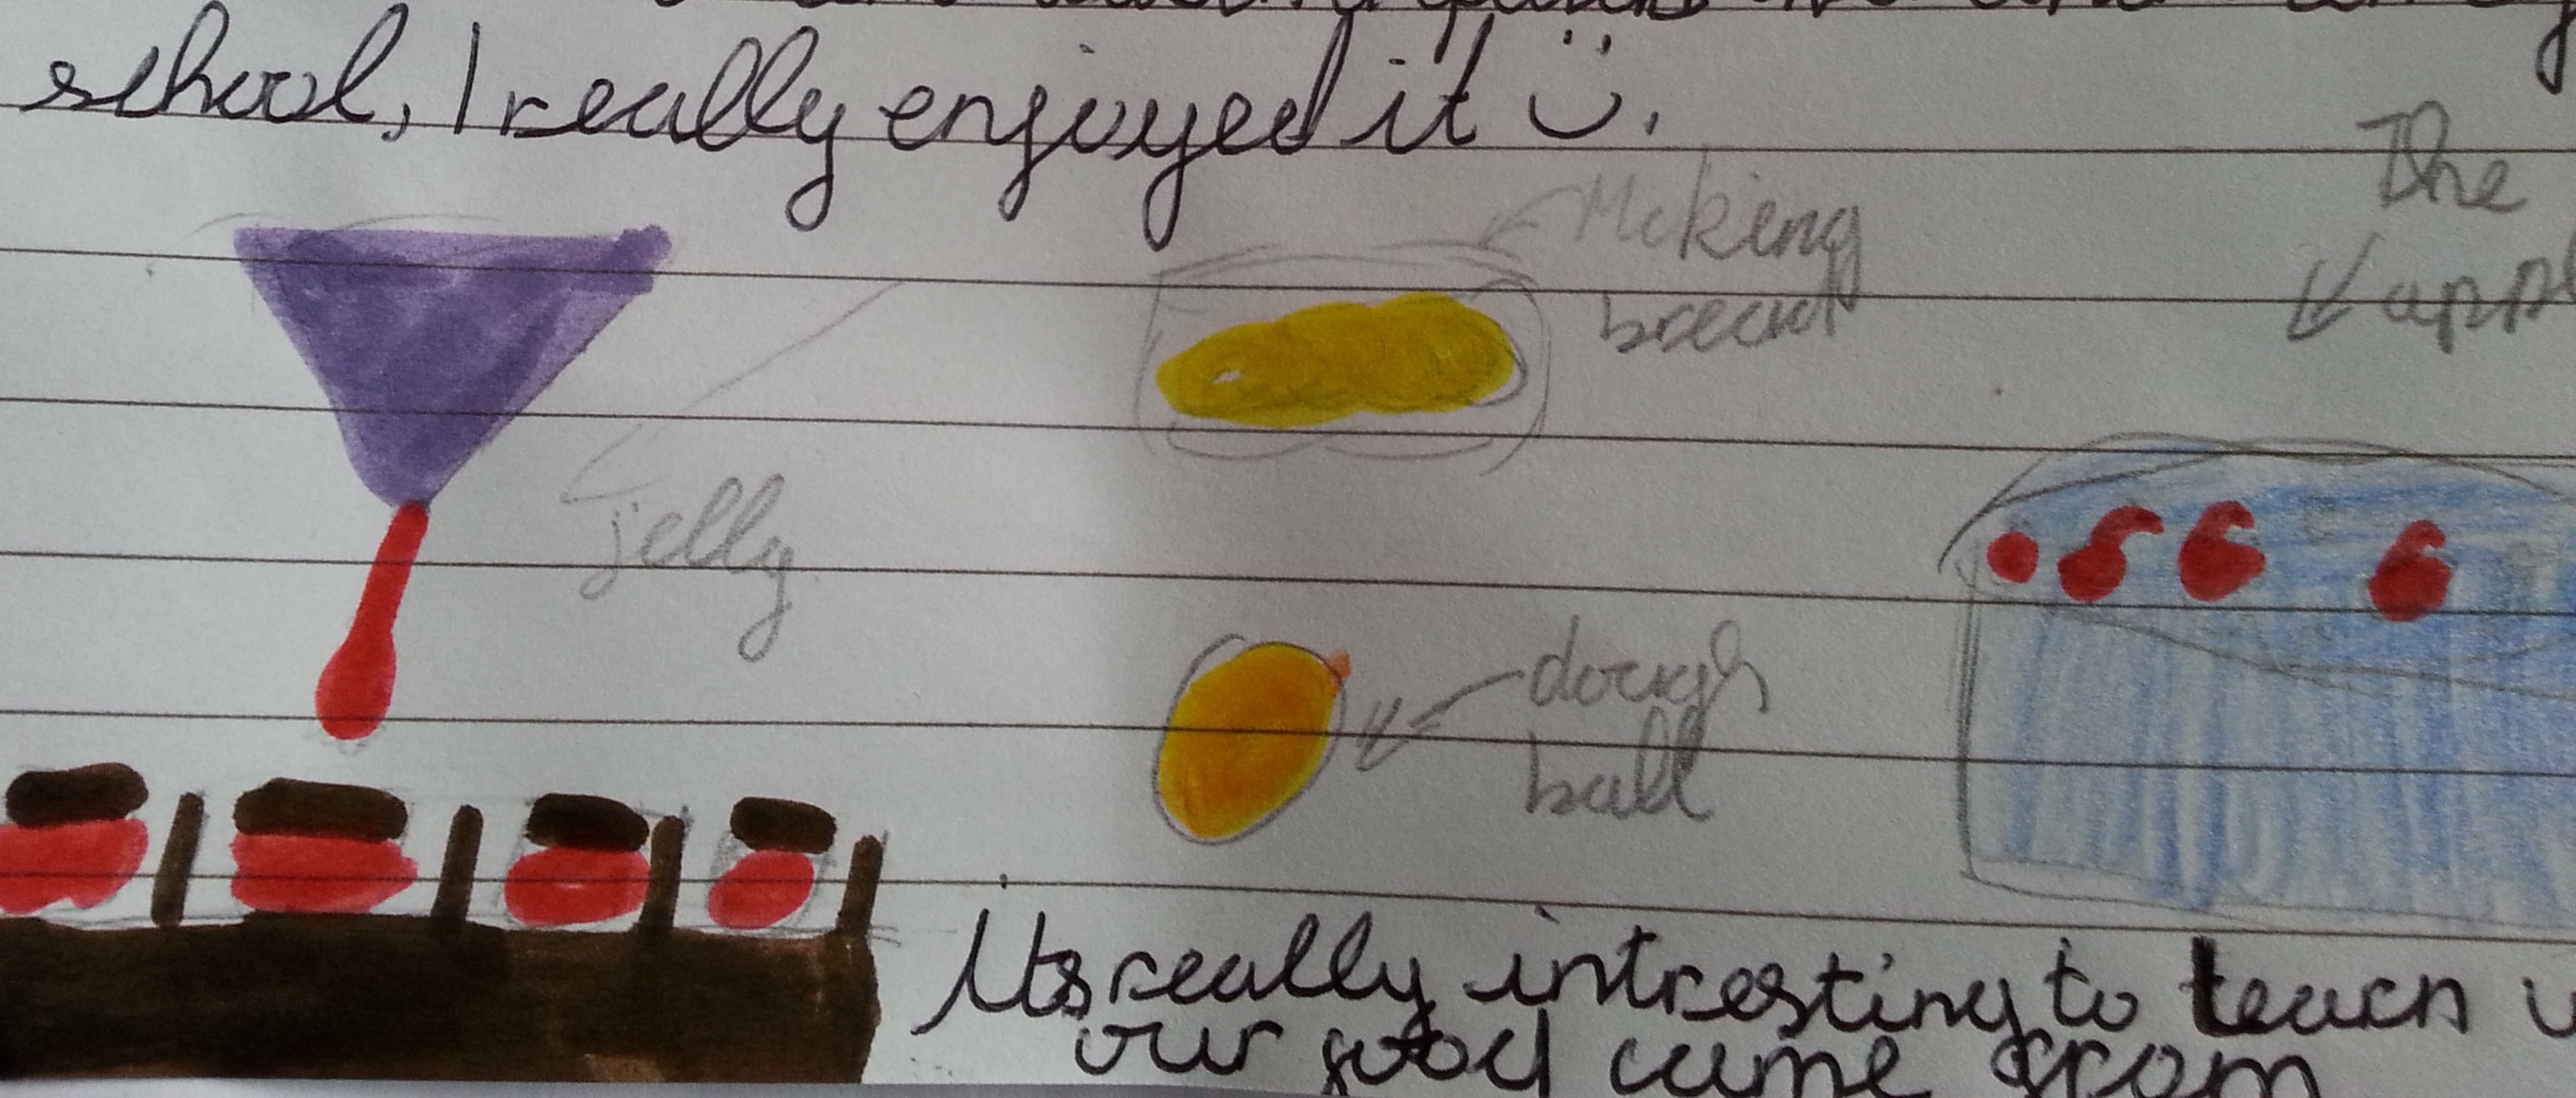 school, I really enjoyed it
Making
bread
The
jelly
dough
ball
Its really intresting to teach
our food came from